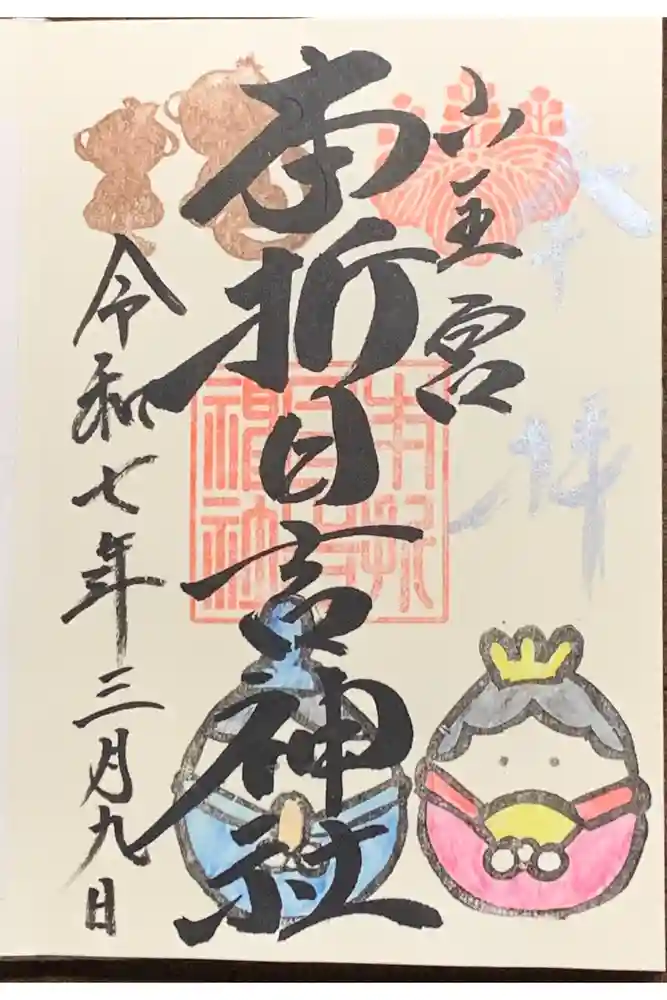 奉拝
山王宮
本折日吉神社
令和七年三月九日
本折
日吉
神社